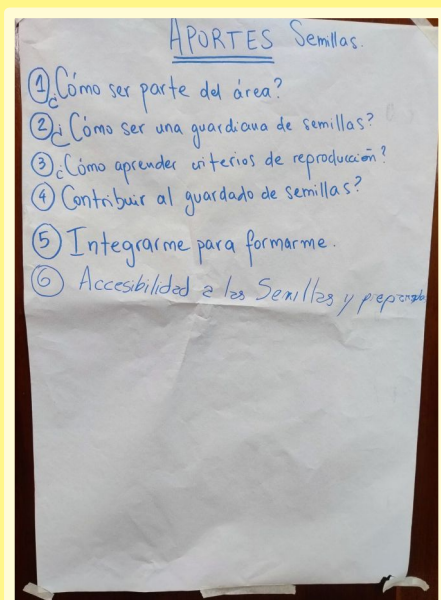 APORTES Semillas.
① ¿Cómo ser parte del área?
② ¿Cómo ser una guardiana de semillas?
③ ¿Cómo aprender criterios de reproducción?
④ Contribuir al guardado de semillas?
⑤ Integrarme para formarme.
⑥ Accesibilidad a las Semillas y